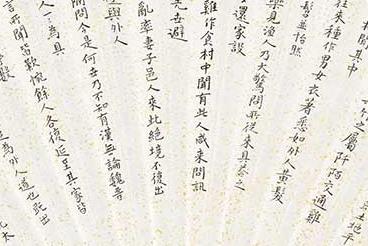 土地平
竹之屬阡陌交通雞
相聞其中
往來種作男女衣著悉如外人黃髮
髫並怡然
樂見漁人乃大驚問所從來具答之
還家設
雞作食村中聞有此人咸來問訊
先世避
亂率妻子邑人來此絕境不復出
與外人
問今是何世乃不知有漢無論魏晉
人一一為具
言所聞皆歎惋餘人各復延至其家皆
為外人道也既出
太